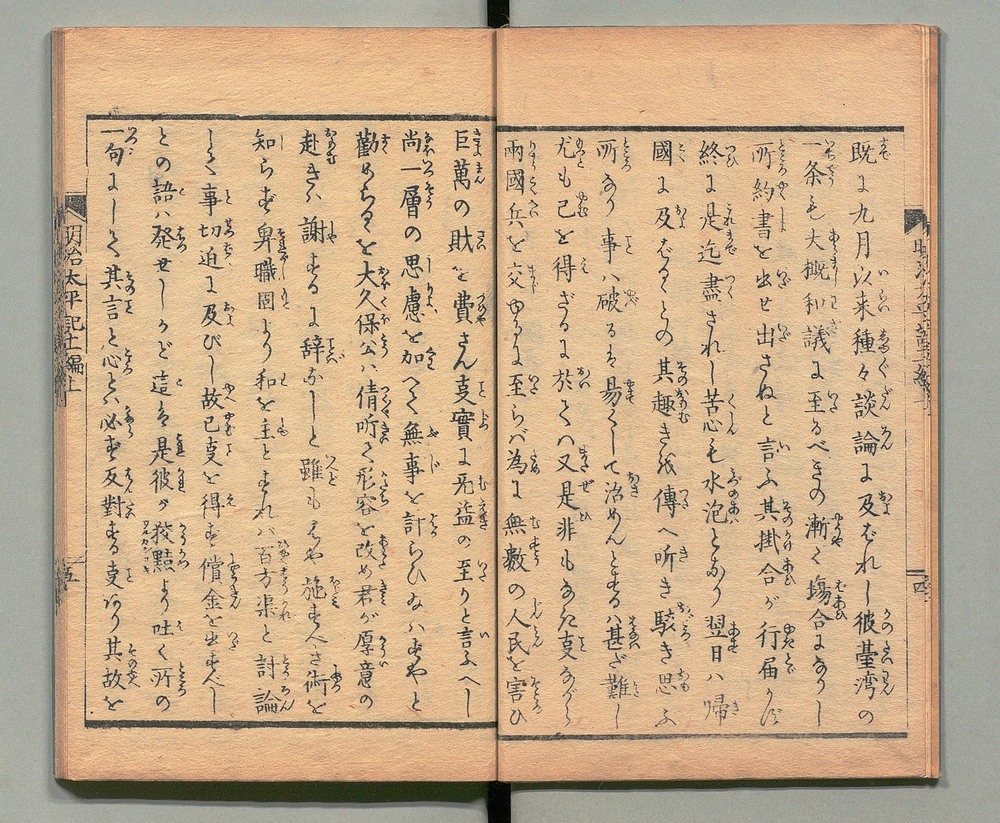 既に九月以来種々談論に及ばれし彼臺湾の
一条も大概和議に至るべきの漸く塲合になりし
所約書を出せ出さねと言ふ其掛合が行届かず
終に是迄盡されし苦心も水泡となり翌日ハ帰
國に及ばるゝとの其趣きを傳へ听き駭き思ふ
所なり事ハ破るゝ易くして治めんとするハ甚ざ難し
尤も已を得ざるに於てハ又是非もなき叓ながら
兩國兵を交ゆるに至らバ為に無數の人民を害ひ
巨萬の財を費さん叓實に无益の至りと言ふへし
尚一層の思慮を加へて無事を計らひ給ハずやと
勸めらるゝを大久保公ハ倩听き形容を改め君が厚意の
赴きハ謝するに辞なしと雖もはや施すべき術を
知らず卑職固より和を主とすれバ百方渠と討論
して事切迫に及びし故已叓を得ず償金を出すべし
との語ハ発せしかど這ハ是彼が狡黠より吐く所の
一句にして其言と心とハ必ず反對する叓あり其故を
明治太平記十一編上
四
五